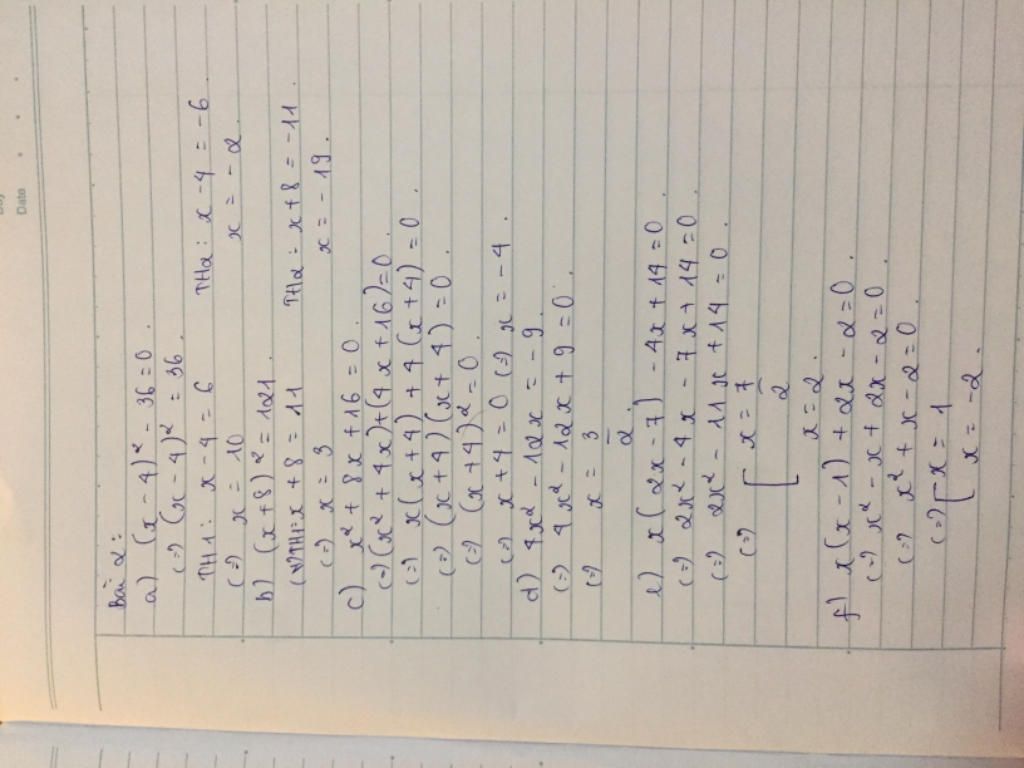 Date
Bài 2:
a) (x - 4)² - 36 = 0.
(=) (x - 4)² = 36
TH1: x - 4 = 6 TH2: x - 4 = -6
(=) x = 10 x = -2
b) (x + 8)² = 121.
TH1: x + 8 = 11 TH2: x + 8 = -11.
(=) x = 3 x = -19.
c) x² + 8x + 16 = 0.
(=) (x² + 4x) + (4x + 16) = 0.
(=) x(x + 4) + 4(x + 4) = 0.
(=) (x + 4)(x + 4) = 0.
(=) (x + 4)² = 0.
(=) x + 4 = 0 (=) x = -4.
d) 4x² - 12x = -9.
(=) 4x² - 12x + 9 = 0.
(=) x = 3/2
e) x(2x - 7) - 4x + 14 = 0.
(=) 2x² - 4x - 7x + 14 = 0
(=) 2x² - 11x + 14 = 0.
(=) [ x = 7/2
x = 2.
f) x(x - 1) + 2x - 2 = 0.
(=) x² - x + 2x - 2 = 0
(=) x² + x - 2 = 0.
(=) [ x = 1
x = -2.